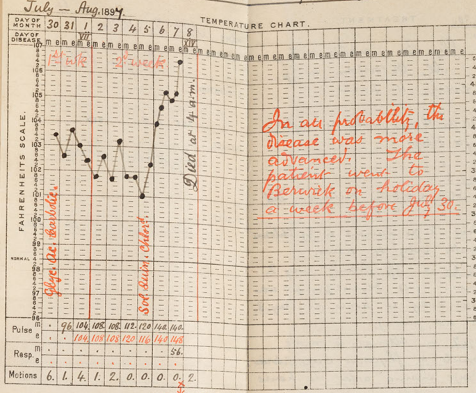 July — Aug. 1897.
TEMPERATURE CHART.
DAY OF MONTH 30. 31 1 2 3 4 5 6 7 8
DAY OF DISEASE VII XIV
m e m e m e m e m e m e m e m e m e m e
1st wk 2nd week
107
104
103
102
101
98
97
FAHRENHEIT'S SCALE.
NORMAL
Glyc. Ac. Carbolic.
Sol. Quin. Chlor.
Died at 4 a.m.
In all probability, the
disease was more
advanced. The
patient went to
Berwick on holiday
a week before July 30.
Pulse m . 96. 104. 108. 108. 112. 120 140. 140.
e . 104. 108 108 120 116 140 148
Resp. m
e 56.
Motions 6. 1. 4. 1. 2. 0. 0. 0. 0. 2.